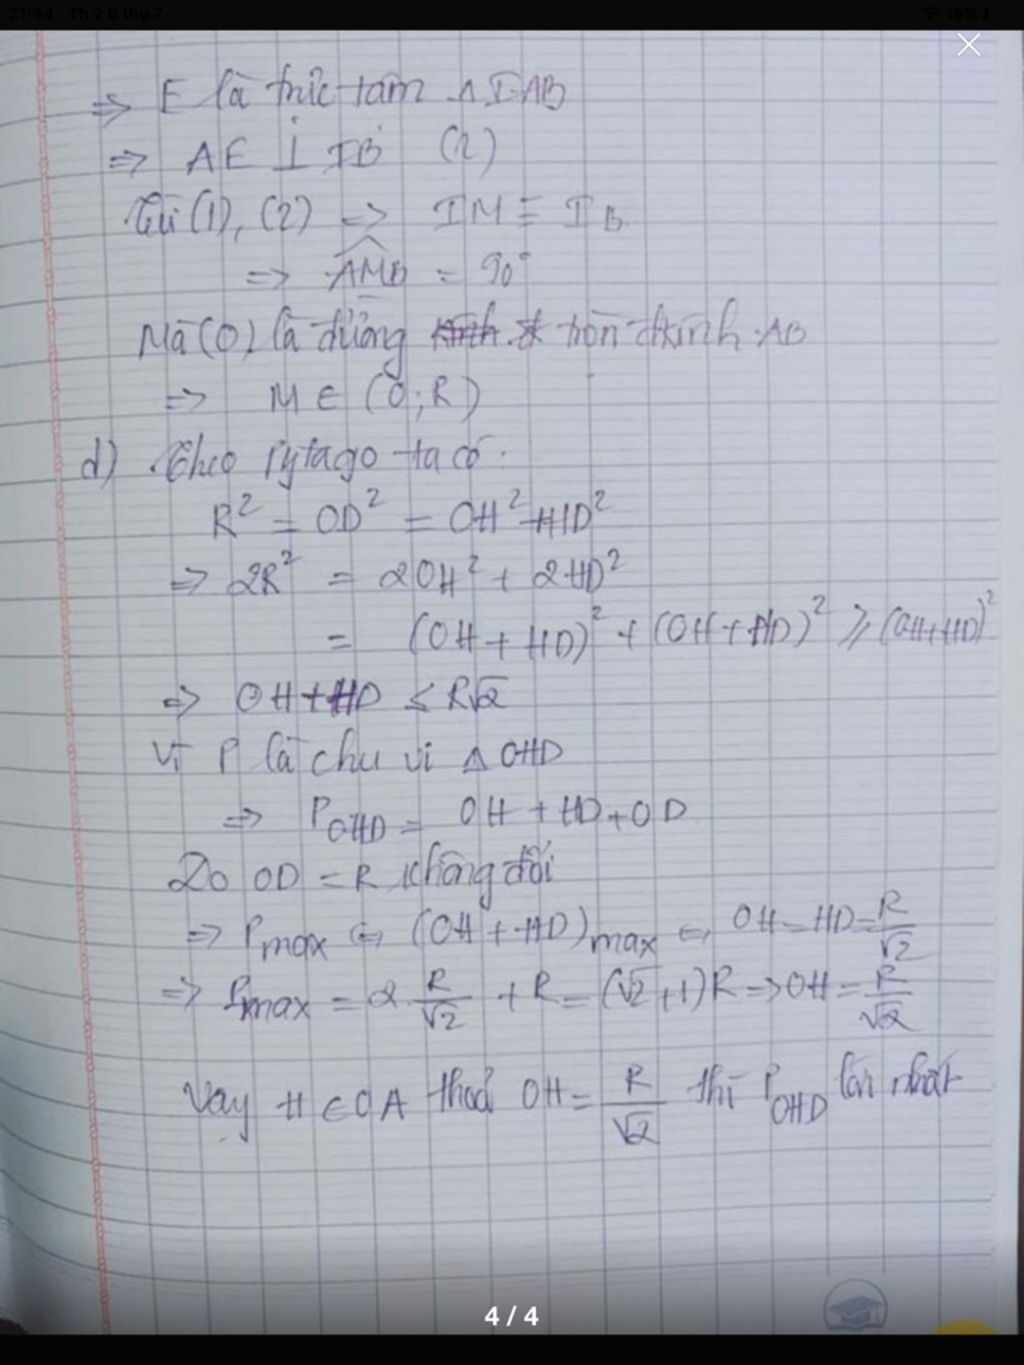 21:44 Th 2 6 thg 7 16%
=> E là trực tâm Δ IAB
=> AE ⊥ IB (2)
Từ (1), (2) => IM ≡ IB
=> AMB = 90°
Mà (O) là đường tròn đkính AB
=> M ∈ (O; R)
d) Theo Pytago ta có:
R² = OD² = OH² + HD²
=> 2R² = 2OH² + 2HD²
= (OH + HD)² + (OH + HD)² ≥ (OH+HD)²
=> OH + HD ≤ R√2
Vì P là chu vi Δ OHD
=> P_OHD = OH + HD + OD
Do OD = R không đổi
=> Pmax ⇔ (OH + HD)max ⇔ OH = HD = R/√2
=> Pmax = 2 R/√2 + R = (√2 + 1) R => OH = R/√2
Vậy H ∈ OA thoả OH = R/√2 thì P_OHD lớn nhất
4 / 4